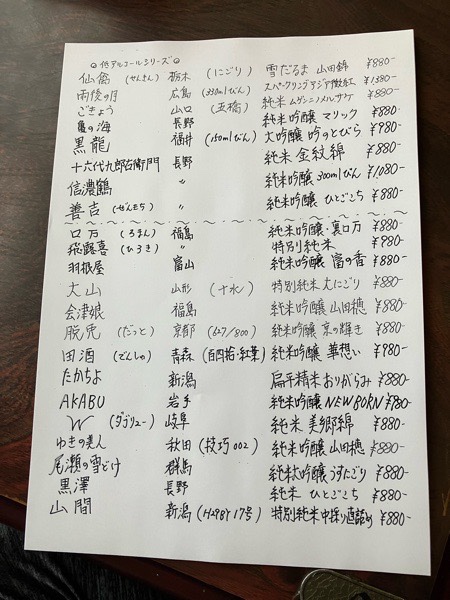 ◎低アルコールシリーズ◎
仙禽 (せんきん) 栃木 (にごり) 雪だるま 山田錦 ¥880-
雨後の月 広島 (330mlびん) スパークリングアジア微紅 ¥1380-
ごきょう 山口 (五橋) 純米 ムゲンニノメルサケ ¥880-
亀の海 長野 純米吟醸 マリック ¥880-
黒龍 福井 (150mlびん) 大吟醸 吟のとびら ¥980-
十六代九郎右衛門 長野 純米 金紋錦 ¥880-
信濃鶴 〃 純米吟醸 300mlびん ¥1080-
善吉 (ぜんきち) 〃 純米吟醸 ひとごこち ¥880-
口万 (ろまん) 福島 純米吟醸・裏口万 ¥880-
飛露喜 (ひろき) 〃 特別純米 ¥980-
羽根屋 富山 純米吟醸 富の香 ¥880-
大山 山形 (十水) 特別純米 大にごり ¥880-
会津娘 福島 純米吟醸 山田穂 ¥880-
脱兎 (だっと) 京都 (627/800) 純米吟醸 京の輝き ¥880-
田酒 (でんしゅ) 青森 (百四拾・紅葉) 純米吟醸 華想い ¥980-
たかちよ 新潟 扁平精米 おりがらみ ¥880-
AKABU 岩手 純米吟醸 NEW BORN ¥780-
W (ダブリュー) 岐阜 純米 美郷錦 ¥880-
ゆきの美人 秋田 (技巧002) 純米吟醸 山田穂 ¥880-
尾瀬の雪どけ 群馬 純米大吟醸 うすにごり ¥880-
黒澤 長野 純米 ひとごこち ¥880-
山間 新潟 (H29BY 17号) 特別純米 中採り直詰め ¥880-